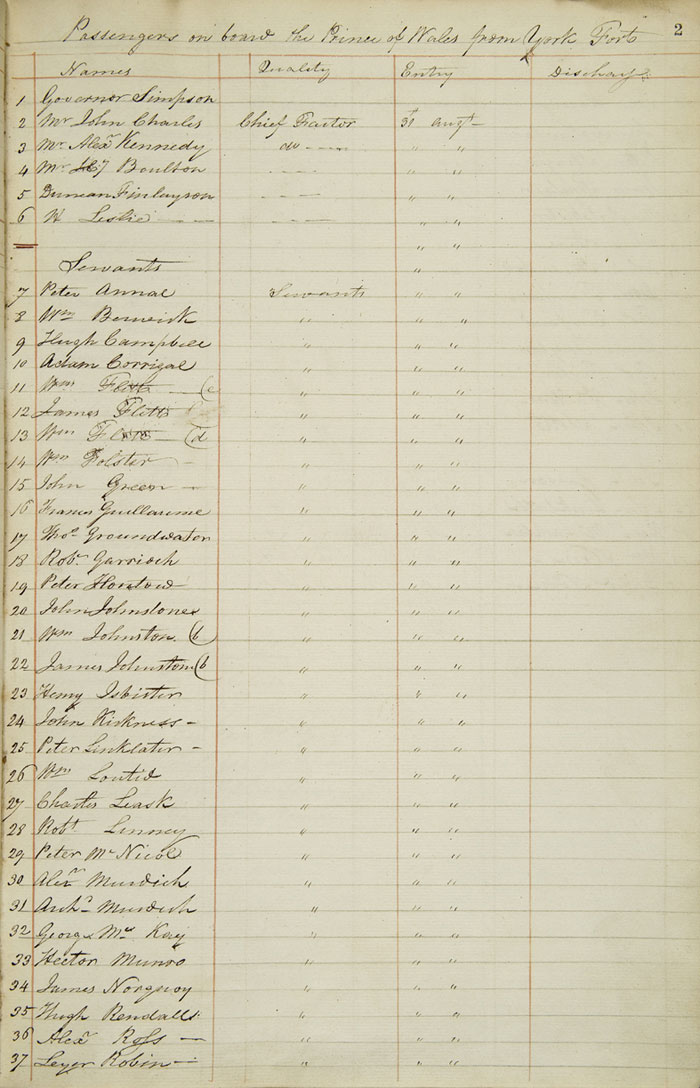 2
Passengers on board the Prince of Wales from York Fort
Names Quality Entry Discharge
1 Governor Simpson
2 Mr John Charles Chief Factor 31 augt —
3 Mr. Alexr Kennedy do — " "
4 Mr Boulton " "
5 Duncan Finlayson " "
6 Leslie " "
" "
Servants "
7 Peter Annal Servants " "
8 Wm Berwick " " "
9 Hugh Campbell " " "
10 Adam Corrigal " " "
11 Wm Flett — (c " " "
12 James Flett " " "
13 Wm Flett — (d " " "
14 Wm Folster — " " "
15 John Green — " " "
16 Francis Guillaume " " "
17 Thos Groundwater " " "
18 Robt. Garrioch " " "
19 Peter " " "
20 John Johnstones " " "
21 Wm Johnston (b " " "
22 James Johnston (b " " "
23 Henry Isbister " " "
24 John Kirkness — " " "
25 Peter Linklater — " " "
26 Wm Loutid " " "
27 Charles Leask " " "
28 Robt Linney " " "
29 Peter Mc Nicol " " "
30 Alexr Murdich " " "
31 Archd Murdich " " "
32 George Mc Kay " " "
33 Hector Munro " " "
34 James Norquoy " " "
35 Hugh Rendall " " "
36 Alexr Ross — " " "
37 Robin — " " "